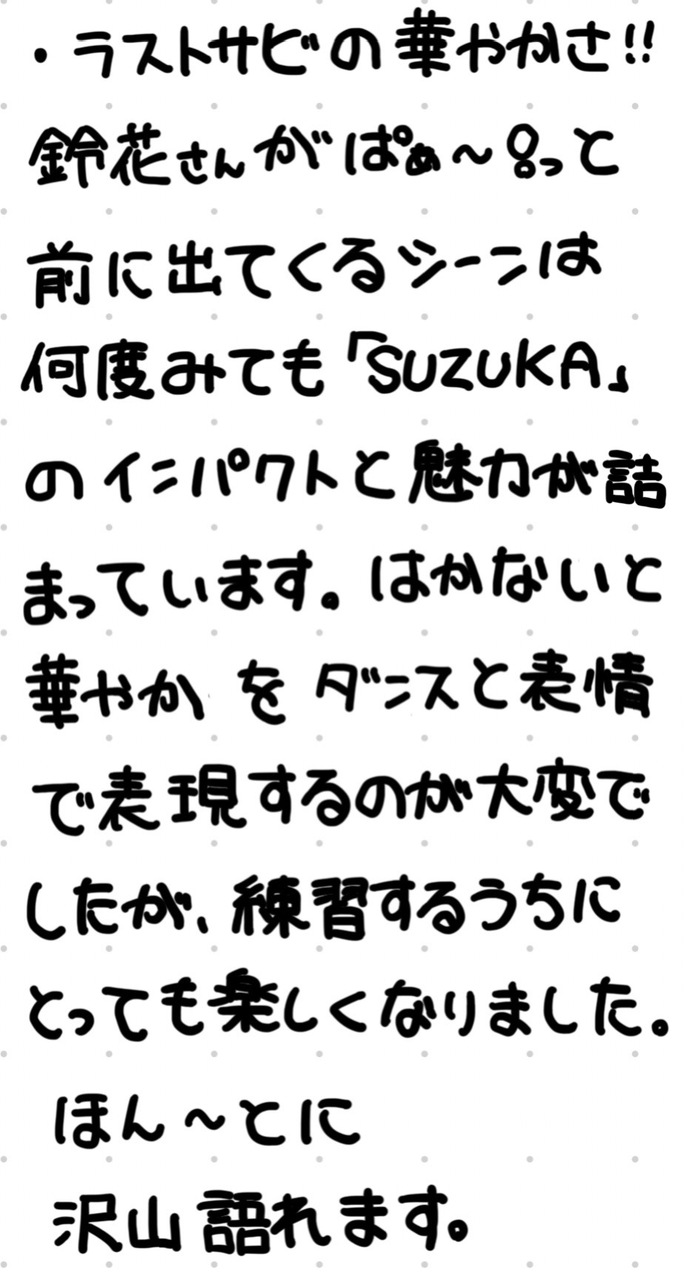 ・ラストサビの華やかさ!!
鈴花さんがぱぁ〜っと
前に出てくるシーンは
何度みても「SUZUKA」
のインパクトと魅力が詰
まっています。はかないと
華やか を ダンスと表情
で表現するのが大変で
したが、練習するうちに
とっても楽しくなりました。
ほん〜とに
沢山語れます。